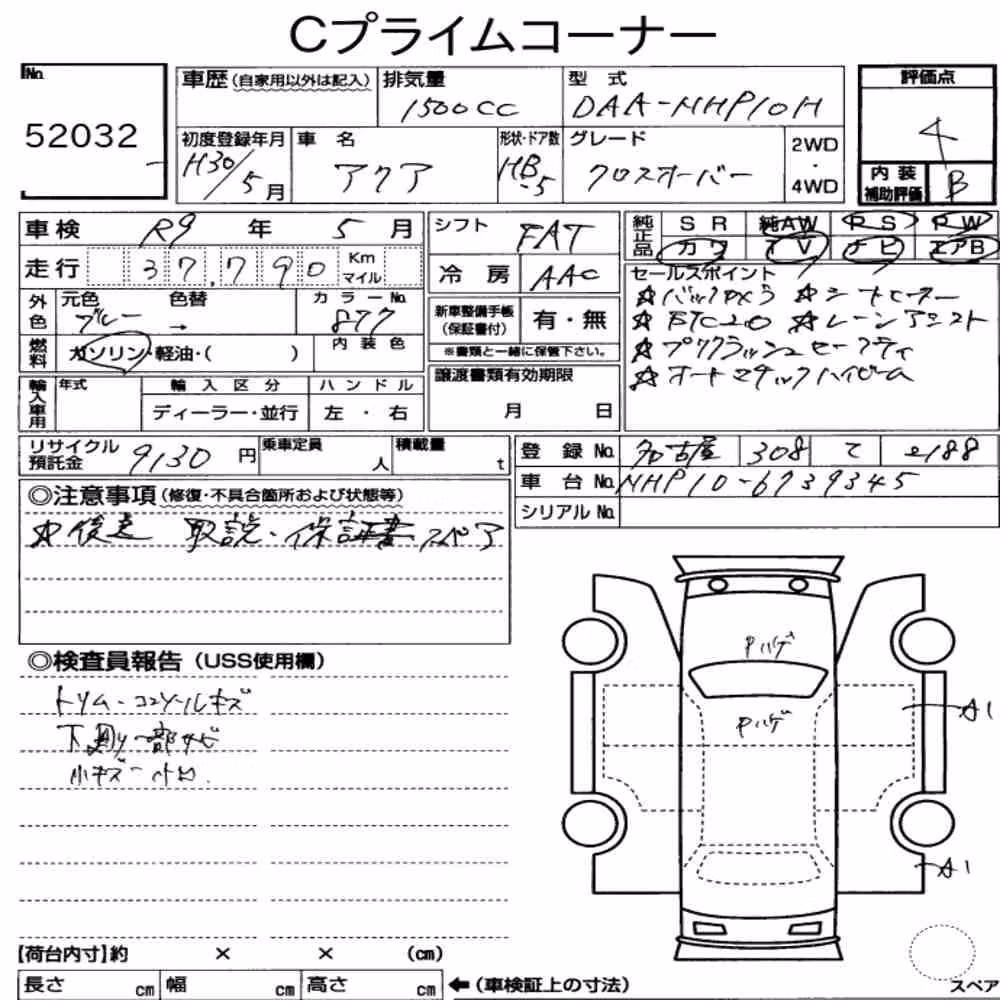 Cプライムコーナー
No.
52032
車歴(自家用以外は記入)
排気量
1500CC
型式
DAA-NHP10H
評価点
4
内装補助評価
B
初度登録年月
H30/5月
車名
アクア
形状・ドア数
HB-5
グレード
クロスオーバー
2WD・4WD
車検 R9年 5月
走行 37,790 Km マイル
シフト FAT
冷房 AAC
純正品 SR 純AW PS PW
カワ TV ナビ エアB
セールスポイント
☆バックカメラ ☆シートヒーター
☆ETC2.0 ☆レーンアシスト
☆プリクラッシュセーフティ
☆オートマチックハイビーム
外色 元色 色替 カラーNo.
ブルー → 877
燃料 ガソリン・軽油・( )
内装色
新車整備手帳(保証書付) 有・無
※書類と一緒に保管下さい。
輸入車用 年式 輸入区分 ハンドル
ディーラー・並行 左・右
譲渡書類有効期限
月 日
リサイクル預託金 9130円
乗車定員 人
積載量 t
登録No. 名古屋 308 て 2188
車台No. NHP10-6739345
シリアルNo.
◎注意事項(修復・不具合箇所および状態等)
☆後送 取説・保証書 スペア
◎検査員報告(USS使用欄)
トリム・コンソールキズ
下廻り一部サビ
小キズ一凹
Pハゲ
Pハゲ
A1
A1
【荷台内寸】約 × × (cm)
長さ cm 幅 cm 高さ cm
←(車検証上の寸法)
スペア